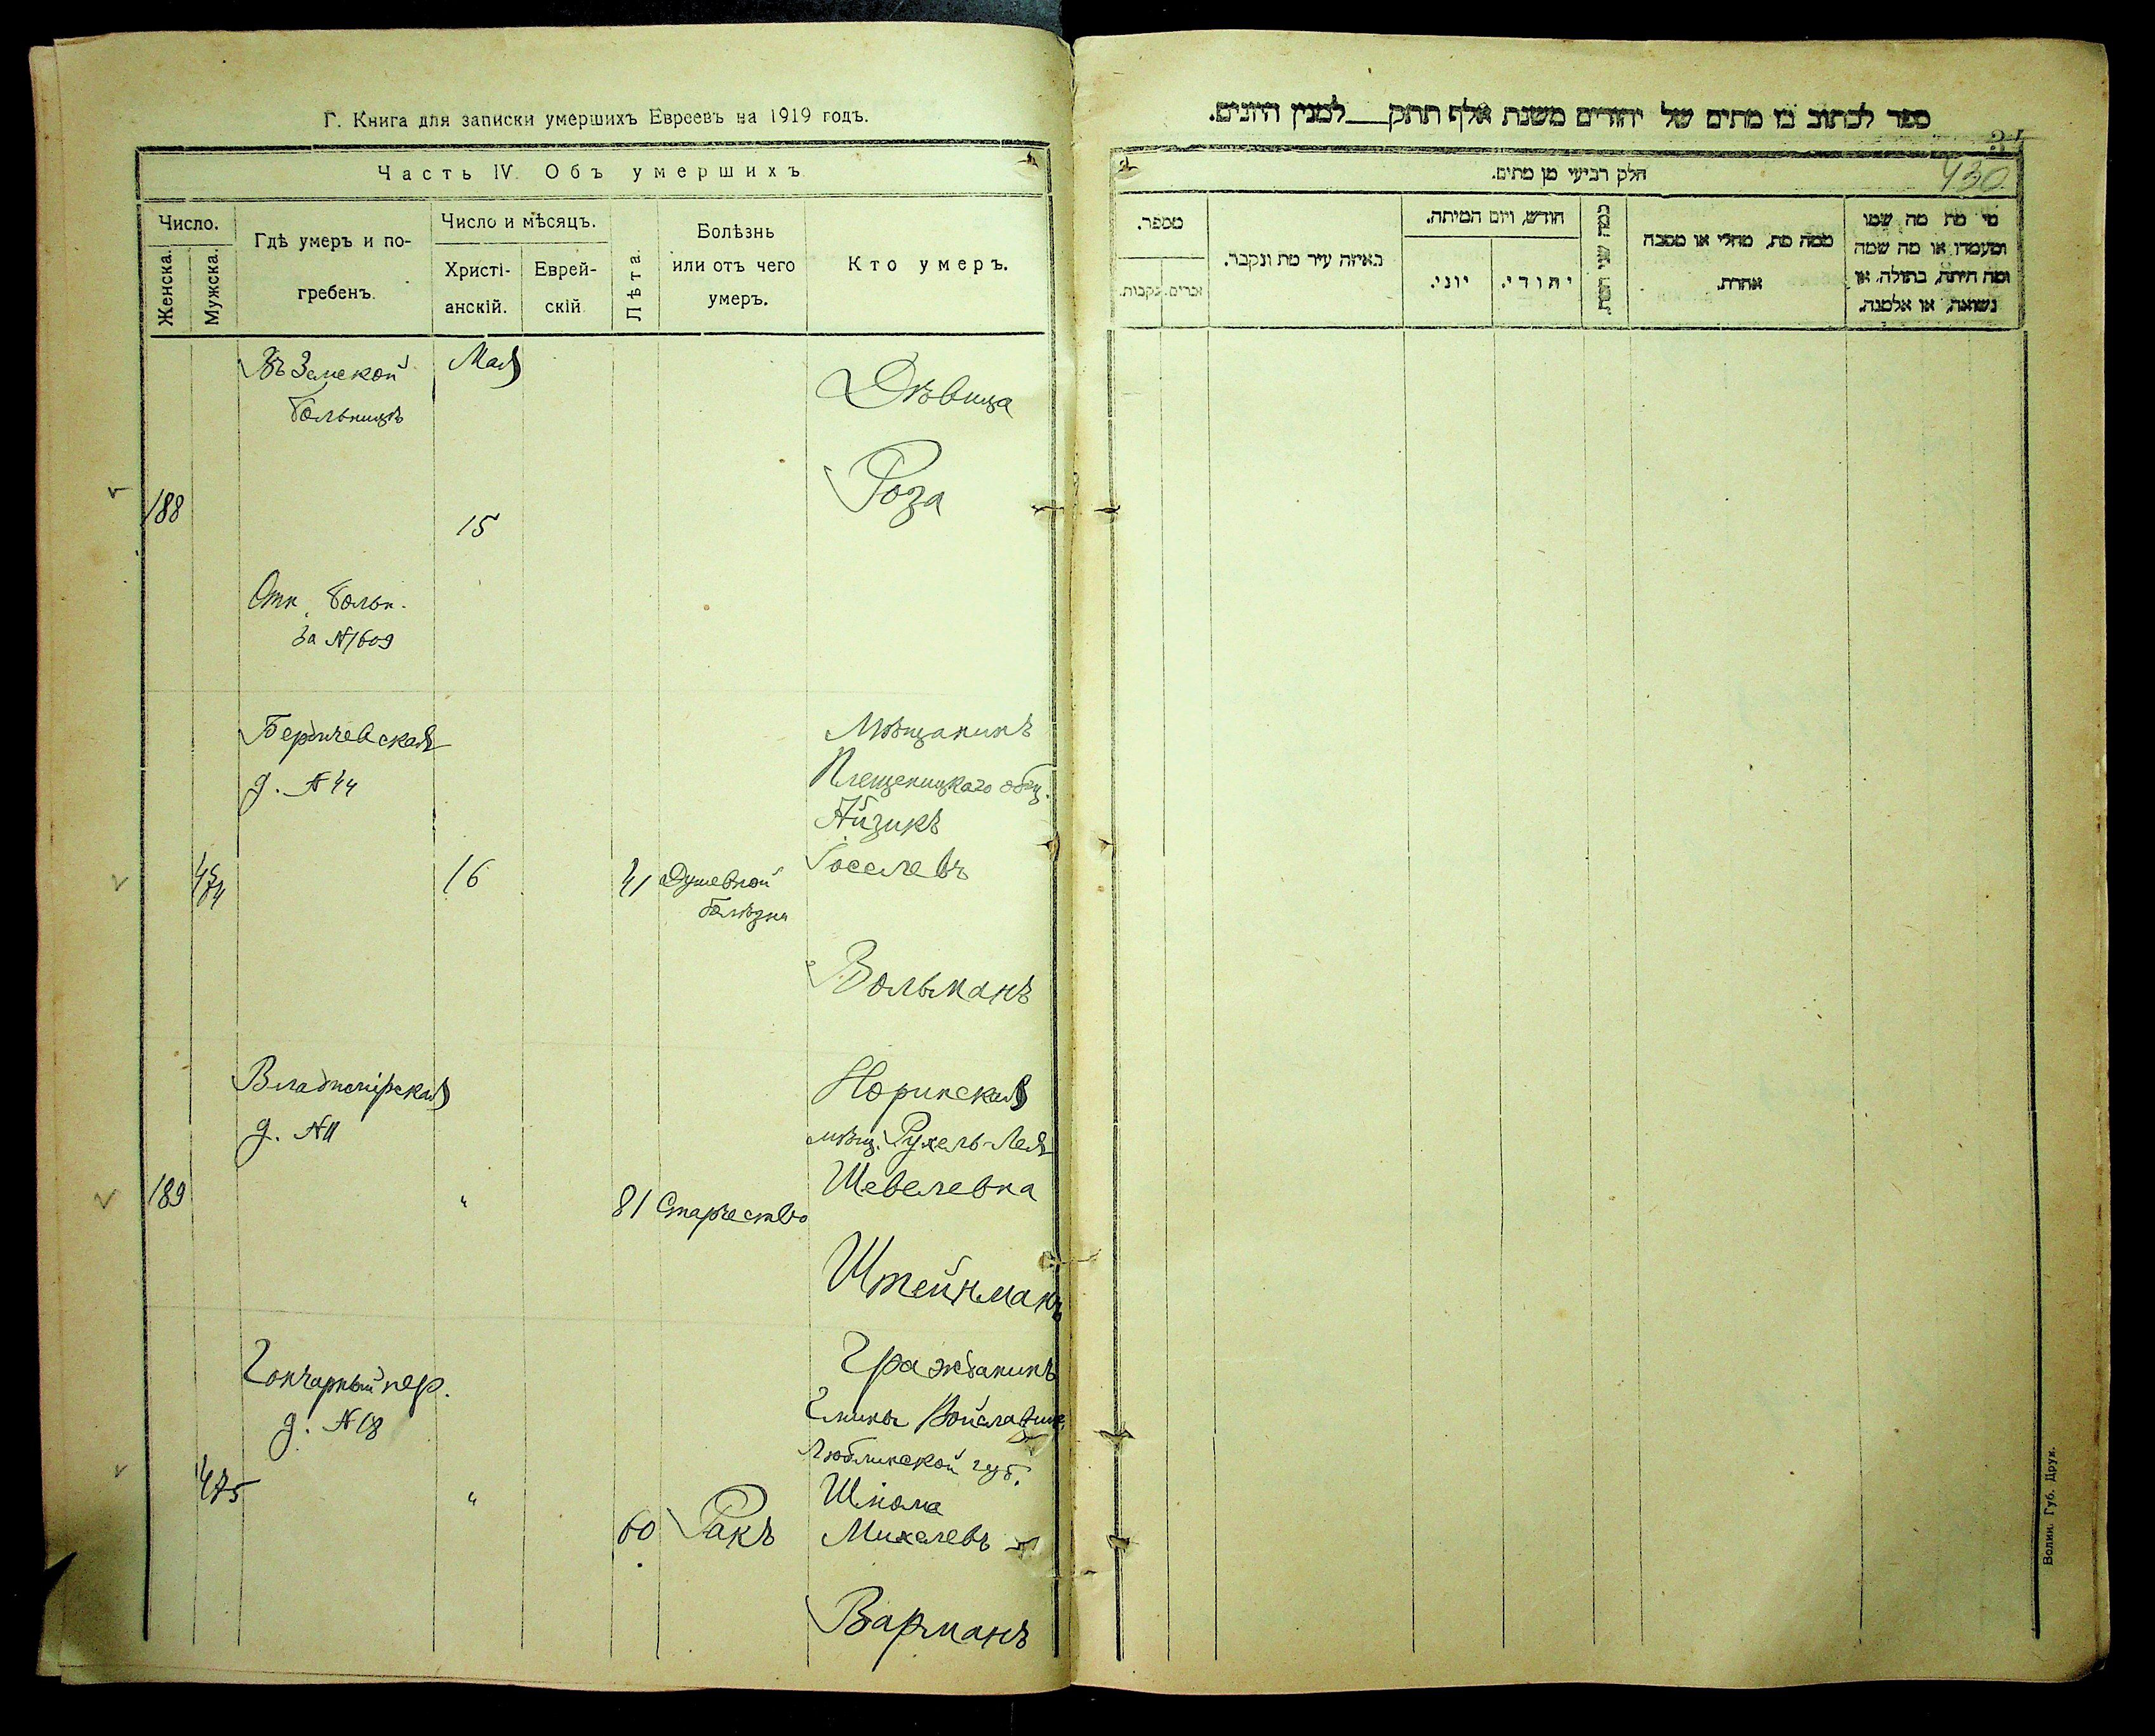 Г. Книга для записки умершихъ Евреевъ на 1919 годъ.
Часть IV. Объ умершихъ
Число.
Женска.
Мужска.
Гдѣ умеръ и по-
гребенъ.
Число и мѣсяцъ.
Христі-
анскій.
Еврей-
скій
Лѣта.
Болѣзнь
или отъ чего
умеръ.
Кто умеръ.
Въ Земской
больницѣ
Мая
Дѣвица
Роза
188
15
Отн. больн.
за №1609
Бердичевская
д. № 44
Мѣщанинъ
Плещеницкаго общ.
Айзикъ
Іоселевъ
474
16
41
Душевной
болѣзни
Вольманъ
Владимірская
д. №11
Норинская
мѣщ. Рухель-Лея
Шевелевна
189
"
81
Старчество
Штейнманъ
Гончарный пер.
д. №18
Гражданинъ
Гмины
Люблинской губ.
Шлома
Михелевъ
475
"
60
Ракъ
Варманъ
ספר לכתוב בו מתים של יהודים משנת אלף תתק למנין היונים.
430
חלק רביעי מן מתים.
מספר.
זכרים.
נקבות.
באיזה עיר מת ונקבר.
חודש, ויום המיתה.
יוני.
יהודי.
כמה שני המת.
ממה מת, מחלי או מסבה
אחרת.
מי מת מה שמו
ומעמדו או מה שמה
ומה היתה, בתולה, או
נשואה, או אלמנה.
Волин. Губ. Друк.